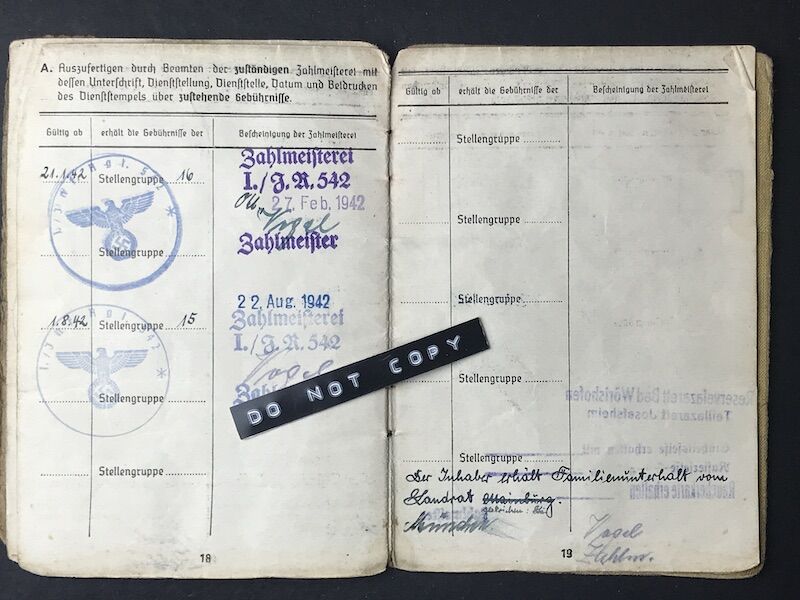 A. Auszufertigen durch Beamten der zuständigen Zahlmeisterei mit
dessen Unterschrift, Dienststellung, Dienststelle, Datum und Beidrucken
des Dienststempels über zustehende Gebührnisse.
Gültig ab erhält die Gebührnisse der Bescheinigung der Zahlmeisterei
21.1.42 Stellengruppe 16
Zahlmeisterei
I./J.R. 542
27. Feb. 1942
Vogel
Zahlmeister
Stellengruppe
22. Aug. 1942
1.8.42 Stellengruppe 15
Zahlmeisterei
I./J.R. 542
Vogel
Stellengruppe
Stellengruppe
18
DO NOT COPY
Gültig ab erhält die Gebührnisse der Bescheinigung der Zahlmeisterei
Stellengruppe
Stellengruppe
Stellengruppe
Stellengruppe
Reservelazarett Bad Wörishofen
Teillazarett Josefsheim
Stellengruppe
Der Inhaber erhält Familienunterhalt vom
Landrat Mainburg.
gestrichen:
München
Vogel
Zahlm.
19